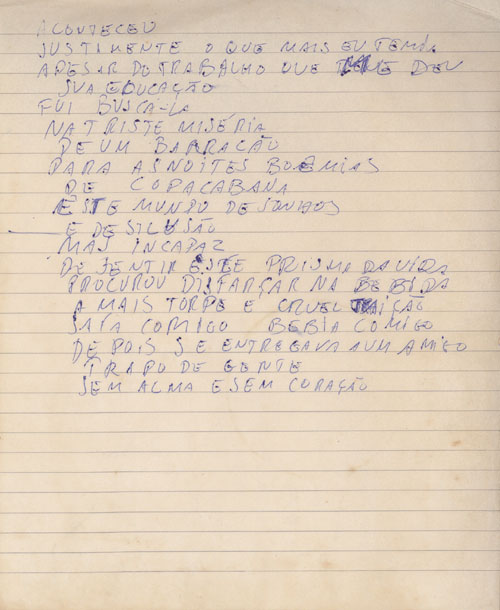 ACONTECEU
JUSTIMENTE O QUE MAIS EU TEMIA
APESAR DO TRABALHO QUE ME DEU
SUA EDUCAÇÃO
FUI BUSCÁ-LA
NA TRISTE MISÉRIA
DE UM BARRACÃO
PARA AS NOITES BOEMIAS
DE COPACABANA
ESTE MUNDO DE SONHOS
E DESILUSÃO
MAS INCAPAZ
DE SENTIR ESTE PRISMA DA VIDA
PROCUROU DISFARÇAR NA BEBIDA
A MAIS TORPE E CRUEL TRAIÇÃO
SAÍA COMIGO BEBIA COMIGO
DEPOIS SE ENTREGAVA A UM AMIGO
TRAPO DE GENTE
SEM ALMA E SEM CORAÇÃO